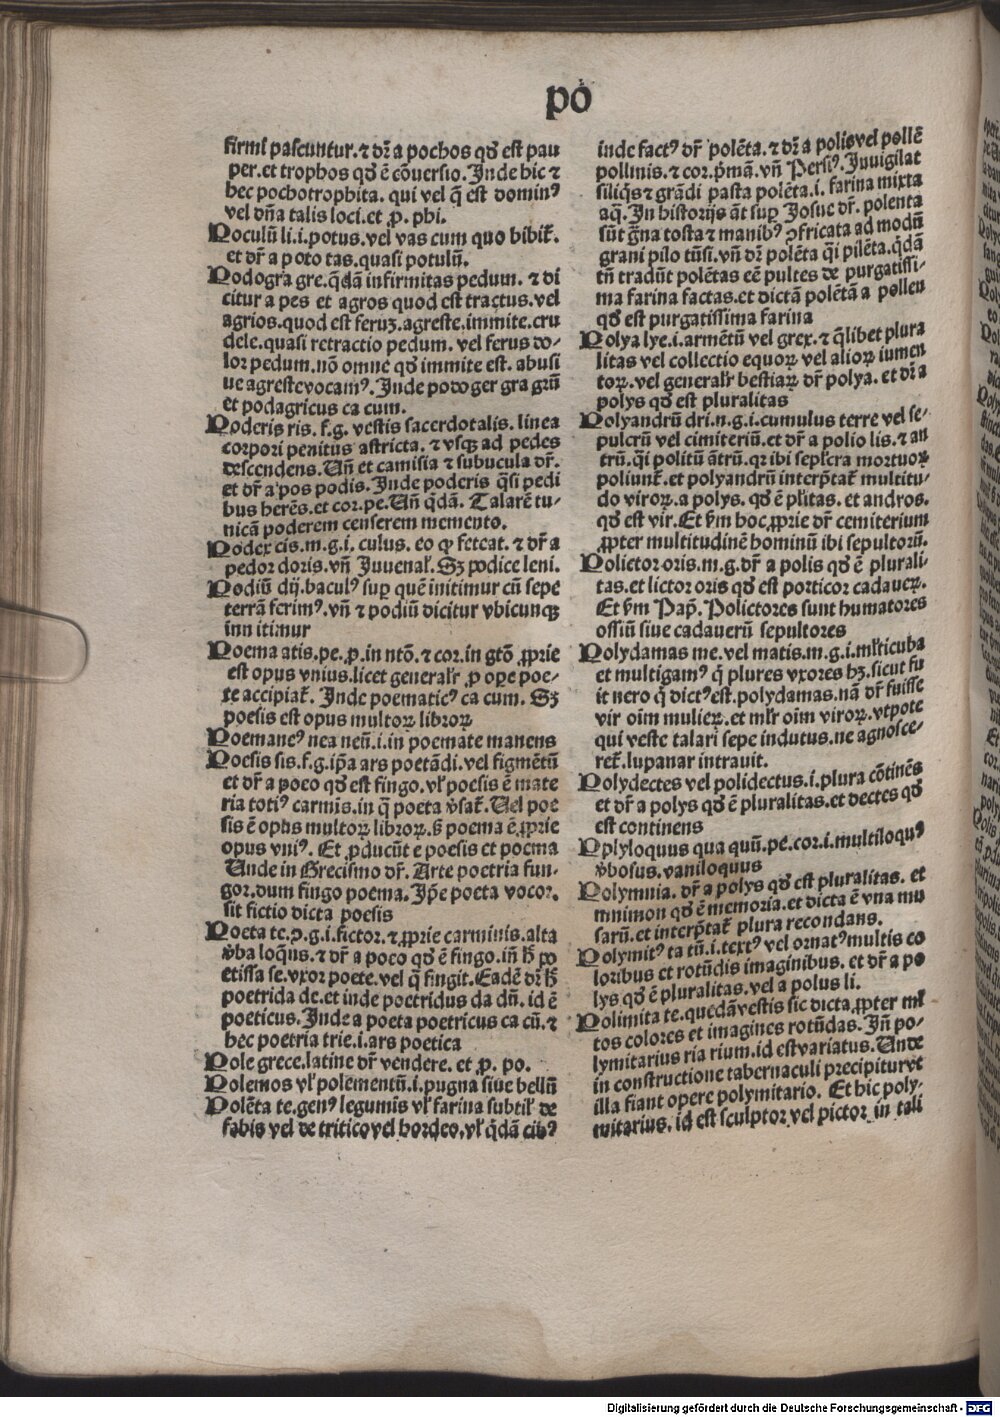 pō
firmi pascuntur. ⁊ dr̄ a pochos qđ est pau
per. et trophos qđ ē cōuersio. Inde hic ⁊
hec pochotrophita. qui vel q̄ est dominꝰ
vel dn̄a talis loci. et ꝓ. phi.
Poculū li. i. potus. vel vas cum quo bibit᷑.
et dr̄ a poto tas. quasi potulū.
Podogra gre. q̄dā infirmitas pedum. ⁊ di
citur a pes et agros quod est tractus. vel
agrios. quod est feruꝫ. agreste. immite. cru
dele. quasi retractio pedum. vel ferus do⸗
lor pedum. nō omne qđ immite est. abusi
ue agreste vocamꝰ. Inde podoger gra grū
et podagricus ca cum.
Poderis ris. f. g. vestis sacerdotalis. linea
corpori penitus astricta. ⁊ vsqꝫ ad pedes
descendens. Uñ et camisia ⁊ subucula dr̄.
et dr̄ a pos podis. Inde poderis q̄si pedi
bus herēs. et cor. pe. Uñ q̄dā. Talarē tu⸗
nicā poderem censerem memento.
Podex cis. m. g. i. culus. eo ꝙ feteat. ⁊ dr̄ a
pedor doris. vñ Juuenal᷑. Sꝫ podice leni.
Podiū dij. baculꝰ sup̄ quē initimur cū sepe
terrā ferimꝰ. vñ ⁊ podiū dicitur vbicunqꝫ
inn itimur
Poema atis. pe. ꝓ. in ntō. ⁊ cor. in gtō ꝓprie
est opus vnius. licet general᷑r ꝓ oꝑe poe⸗
te accipiat᷑. Inde poematicꝰ ca cum. Sꝫ
poesis est opus multoꝝ libroꝝ
Poemaneꝰ nea neū. i. in poemate manens
Poesis sis. f. g. ip̄a ars poetādi. vel figmētū
et dr̄ a poco qđ est fingo. vl᷑ poesis ē mate
ria totiꝰ carmīs. in q̄ poeta v̄sat᷑. Vel poe
sis ē opus multoꝝ libroꝝ. ß poema ē ꝓprie
opus vniꝰ. Et ꝓducūt e poesis et poema
Unde in Grecismo dr̄. Arte poetria fun⸗
gor. dum fingo poema. Ip̄e poeta vocor.
sit fictio dicta poesis
Poeta te. ꝯ. g. i. fictor. ⁊ ꝓprie carminis. alta
v̄ba loq̄ns. ⁊ dr̄ a poco qđ ē fingo. iñ h̄ po
etissa se. vxor poete. vel q̄ fingit. Eadē dr̄ h̄
poetrida de. et inde poetridus da dū. id ē
poeticus. Inde a poeta poetricus ca cū. ⁊
hec poetria trie. i. ars poetica
Pole grece. latine dr̄ vendere. et ꝓ. po.
Polemos vl᷑ polementū. i. pugna siue bellū
Polēta te. genꝰ legumīs vl᷑ farina subtil᷑ de
fabis vel de tritico vel hordeo. vl᷑ q̄dā cibꝰ
inde factꝰ dr̄ polēta. ⁊ dr̄ a polis vel pollē
pollinis. ⁊ cor. p̄mā. vñ Persiꝰ. Juuigilat
siliq̄s ⁊ grādi pasta polēta. i. farina mixta
aq̄. In historijs āt sup̄ Josue dr̄. polenta
sūt g̃na tosta ⁊ manibꝰ ꝯfricata ad modū
grani pilo tūsi. vñ dr̄ polēta q̄i pilēta. q̄dā
tñ tradūt polētas eē pultes de purgatissi⸗
ma farina factas. et dictā polētā a pollen
qđ est purgatissima farina
Polya lye. i. armētū vel grex. ⁊ q̄libet plura
litas vel collectio equoꝝ vel alioꝝ iumen
toꝝ. vel general᷑r bestiaꝝ dr̄ polya. et dr̄ a
polys qđ est pluralitas
Polyandrū dri. n. g. i. cumulus terre vel se⸗
pulcrū vel cimiteriū. et dr̄ a polio lis. ⁊ an
trū. q̄i politū ātrū. qꝛ ibi sepl᷑cra mortuoꝝ
poliunt᷑. et polyandrū interp̄tat᷑ multitu⸗
do viroꝝ. a polys. qđ ē pl᷑itas. et andros.
qđ est vir. Et s̄m hoc ꝓprie dr̄ cemiterium
ꝓpter multitudinē hominū ibi sepultorū.
Polictor oris. m. g. dr̄ a polis qđ ē plurali⸗
tas. et lictor oris qđ est porticor cadaueꝝ.
Et s̄m Pap̄. Polictores sunt humatores
ossiū siue cadauerū sepultores
Polydamas me. vel matis. m. g. i. ml᷑ticuba
et multigamꝰ q̄ plures vxores hꝫ. sicut fu
it nero q̄ dictꝰ est. polydamas. nā dr̄ fuisse
vir oīm mulieꝝ. et ml᷑r oīm viroꝝ. vtpote
qui veste talari sepe indutus. ne agnosce⸗
ret᷑. lupanar intrauit.
Polydectes vel polidectus. i. plura cōtinēs
et dr̄ a polys qđ ē pluralitas. et dectes qđ
est continens
Pplyloquus qua quū. pe. cor. i. multiloquꝰ
v̄bosus. vaniloquus
Polymnia. dr̄ a polys qđ est pluralitas. et
mnimon qđ ē memoria. et dicta ē vna mu
sarū. et interp̄tat᷑ plura recondans.
Polymitꝰ ta tū. i. textꝰ vel ornatꝰ multis co
loribus et rotūdis imaginibus. et dr̄ a po
lys qđ ē pluralitas. vel a polus li.
Polimita te. quedā vestis sic dicta ꝓpter ml᷑
tos colores et imagines rotūdas. Iñ po⸗
lymitarius ria rium. id est variatus. Unde
in constructione tabernaculi precipiturvt
illa fiant opere polymitario. Et hic poly⸗
mitarius. id est sculptor vel pictor in tali
Digitalisierung gefördert durch die Deutsche Forschungsgemeinschaft - DFG